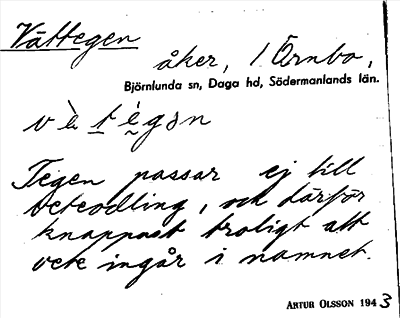 Vättegen
åker, 1 Örnbo,
Björnlunda sn, Daga hd, Södermanlands län.
v ὲ t é gən
Tegen passar ej till
veteodling, och därför
knappast troligt att
vete ingår i namnet.
ARTUR OLSSON 1943